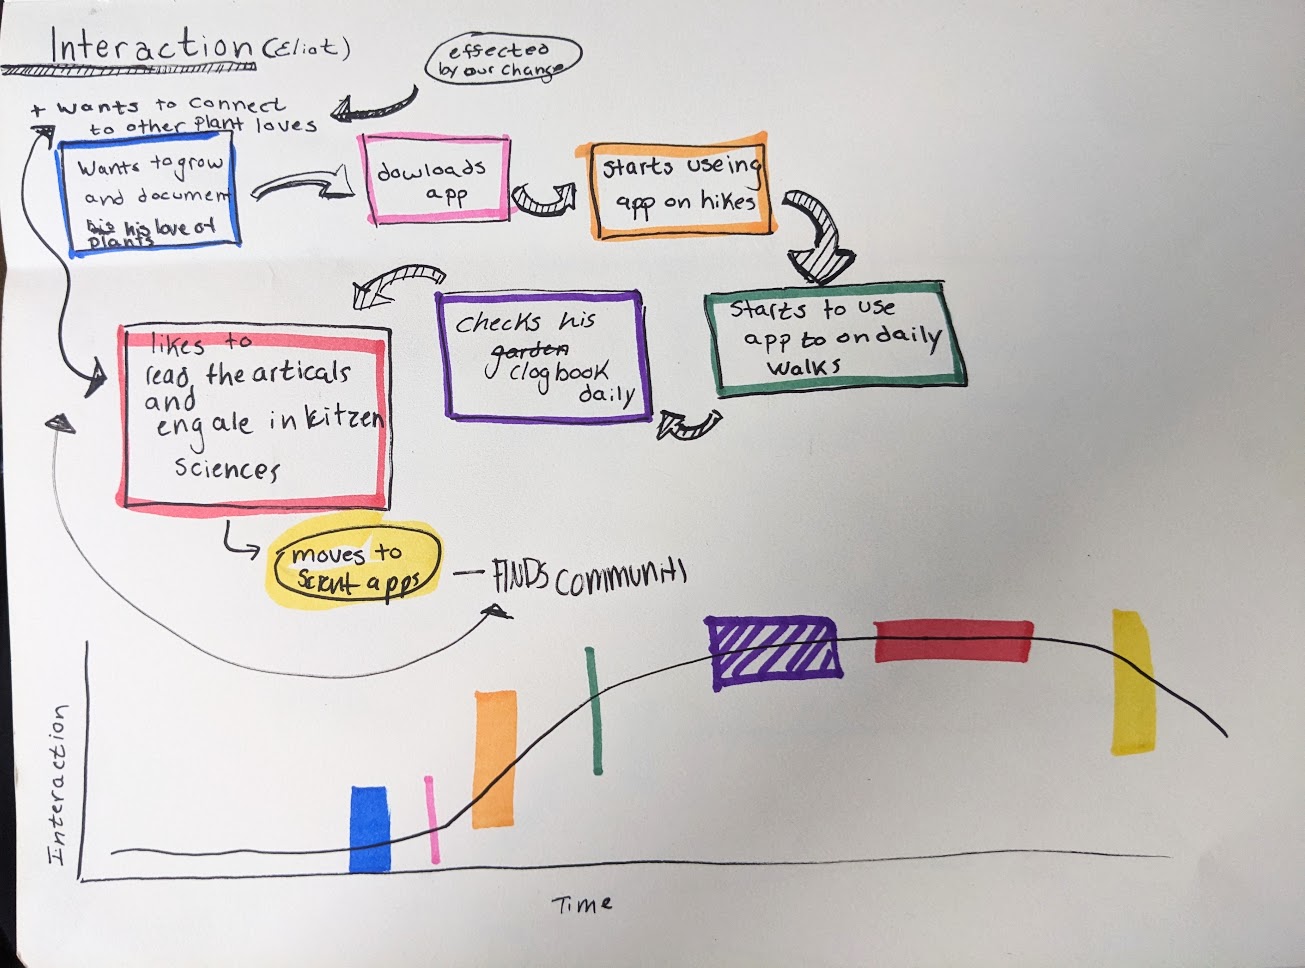 Interaction (Eliot)
effected
by our change
+ wants to connect
to other plant loves
Wants to grow
and document
his his love of
plants
dowloads
app
starts useing
app on hikes
Starts to use
app to on daily
walks
checks his
garden
clogbook
daily
likes to
read the articals
and
engale in kitzen
sciences
moves to
scient apps
— FINDS communiti
Interaction
Time